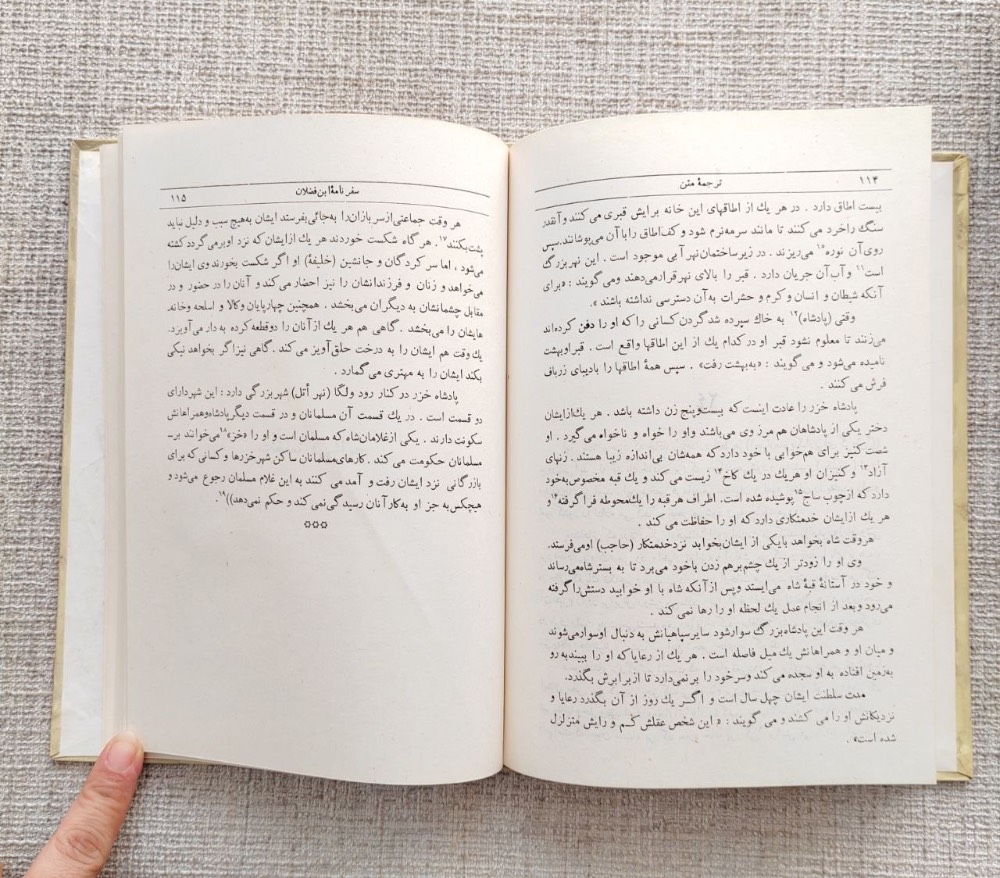 ۱۱۴ ترجمهٔ متن
بیست اطاق دارد . در هر یك از اطاقهای این خانه برایش قبری می کنند و آنقدر
سنگ راخرد می کنند تا مانند سرمه‌نرم شود و کف‌اطاق را با آن می‌پوشانند.سپس
روی آن نوره۱۵ می‌ریزند . در زیر ساختمان نهر آبی موجود است . این نهر بزرگ
است۱۱ و آب آن جریان دارد . قبر را بالای نهر قرار می‌دهند و می گویند : «برای
آنکه شیطان و انسان و کرم و حشرات به آن دسترسی نداشته باشند ».
وقتی (پادشاه)۱۲ به خاك سپرده شد گردن کسانی را که او را دفن کرده‌اند
می‌زنند تا معلوم نشود قبر او در کدام یك از این اطاقها واقع است . قبر او بهشت
نامیده می‌شود و می گویند : «به‌بهشت رفت» . سپس همهٔ اطاقها را بادیبای زرباف
فرش می کنند .
پادشاه خزر را عادت اینست که بیست‌وپنج زن داشته باشد . هر یك ازایشان
دختر یکی از پادشاهان هم مرز وی می‌باشند واو را خواه و ناخواه می گیرد . او
شصت کنیز برای هم‌خوابی با خود دارد که همه‌شان بی‌اندازه زیبا هستند . زنهای
آزاد۱۳ و کنیزان او هریك در یك کاخ۱۴ زیست می کند و یك قبه مخصوص به‌خود
دارد که ازچوب ساج۱۵ پوشیده شده است. اطراف هر قبه را یك‌محوطه فرا گرفته۱۶ و
هر یك ازایشان خدمتکاری دارد که او را حفاظت می کند .
هروقت شاه بخواهد بایکی از ایشان‌بخوابد نزدخدمتکار (حاجب) اومی‌فرستد.
وی او را زودتر از یك چشم‌برهم زدن باخود می‌برد تا به بسترشاه‌می‌رساند
و خود در آستانهٔ قبهٔ شاه می‌ایستد وپس از آنکه شاه با او خوابید دستش‌را گرفته
می‌رود و بعد از انجام عمل یك لحظه او را رها نمی کند .
هر وقت این پادشاه‌بزرگ سوارشود سایرسپاهیانش به دنبال اوسوارمی‌شوند
و میان او و همراهانش یك میل فاصله است . هر یك از رعایا که او را ببیندبه رو
به‌زمین افتاده به او سجده می کند وسرخود را برنمی‌دارد تا از برابرش بگذرد.
مدت سلطنت ایشان چهل سال است و اگـر یك روز از آن بگذرد رعایا و
نزدیکانش او را می کشند و می گویند : « این شخص عقلش کـم و رایش متزلزل
شده است» .
سفرنامهٔ ابن‌فضلان ۱۱۵
هر وقت جماعتی ازسربازان‌را به‌جائی بفرستد ایشان به‌هیچ سبب و دلیل نباید
پشت بکنند۱۷. هر گاه شکست خوردند هر یك ازایشان که نزد اوبرمی گردد کشته
می‌شود ، اما سر کردگان و جانشین (خلیفهٔ) او اگر شکست بخورند وی ایشان‌را
می‌خواهد و زنان و فرزندانشان را نیز احضار می کند و آنان را در حضور و در
مقابل چشمانشان به دیگران می بخشد . همچنین چهارپایان وکالا و اسلحه وخانه‌
هایشان را می‌بخشد . گاهی هم هر یك ازآنان را دوقطعه کرده به دار می‌آویزد.
یك وقت هم ایشان را به درخت حلق‌آویز می کند . گاهی نیز اگر بخواهد نیکی
بکند ایشان را به مهتری می گمارد .
پادشاه خزر در کنار رود ولگا (نهر اُتل) شهر بزرگی دارد : این شهردارای
دو قسمت است . در یك قسمت آن مسلمانان و در قسمت دیگر پادشاه‌وهمراهانش
سکونت دارند . یکی ازغلامان‌شاه که مسلمان است و او را «خز»۱۸می‌خوانند بر-
مسلمانان حکومت می کند . کارهای‌مسلمانان ساکن شهرخزرها وکسانی که برای
بازرگانی نزد ایشان رفت و آمد می کنند به این غلام مسلمان رجوع می‌شود و
هیچکس به جز او به‌کار آنان رسیدگی نمی‌کند و حکم نمی‌دهد))۱۹.
***